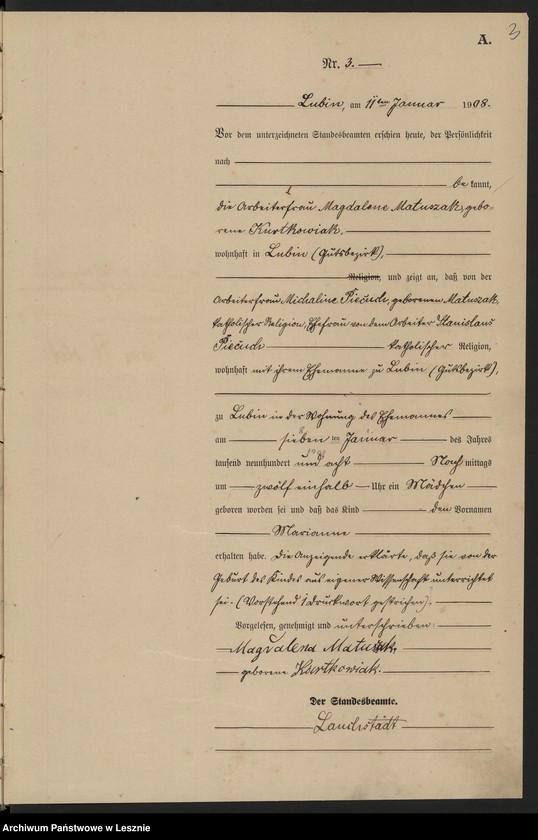 3
A.
Nr. 3.
Lubin, am 11ten Januar 1908.
Vor dem unterzeichneten Standesbeamten erschien heute, der Persönlichkeit
nach
bekannt,
die Arbeiterfrau Magdalene Matuszak, gebo-
rene Kurtkowiak,
wohnhaft in Lubin (Gutsbezirk),
Religion, und zeigt an, daß von der
Arbeiterfrau Michaline Piećuch, geborenen Matuszak,
katholischer Religion, Ehefrau von dem Arbeiter Stanislaus
Piećuch katholischer Religion,
wohnhaft mit ihrem Ehemanne zu Lubin (Gutsbezirk),
zu Lubin in der Wohnung des Ehemannes
am sieben ten Januar des Jahres
tausend neunhundert und acht Nachmittags
um zwölf einhalb Uhr ein Mädchen
geboren worden sei und daß das Kind den Vornamen
Marianne
erhalten habe. Die Anzeigende erklärte, daß sie von der
Geburt des Kindes aus eigener Wissenschaft unterrichtet
sei. (Vorstehend 1 Druckwort gestrichen).
Vorgelesen, genehmigt und unterschrieben:
Magdalena Matuszak,
geborene Kurtkowiak.
Der Standesbeamte.
Lauchstädt
Archiwum Państwowe w Lesznie